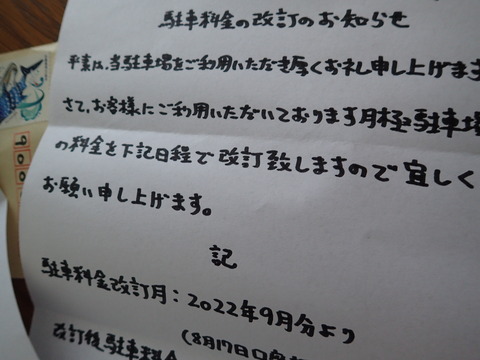 駐車料金の改訂のお知らせ
平素は、当駐車場をご利用いただき厚くお礼申し上げます
さて、お客様にご利用いただいております月極駐車場
の料金を下記日程で改訂致しますので宜しく
お願い申し上げます。
記
駐車料金改訂月：2022年9月分より
(8月17日口
改訂後駐車料金
900